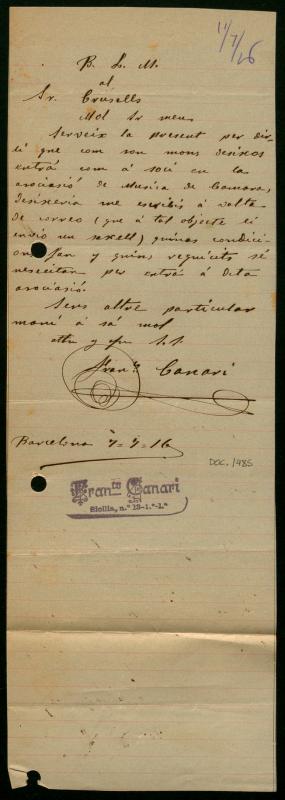 11/7/16
B. L. M.
al
Sr. Crusells
Mol Sr meu:
Serveix la present per dir-
li que com son mons desitxos
entrá com á soci en la
asociasió de Musica de Camara,
desitxeria me escribis á volta
de correo (que á tal objecte li
envio un sexell) quinas condici-
ons fan y quins requisits se
nesecitan per entrá á dita
asociasió.
Sens altre particular
maní á sá mol
attu y afm S.S.
Franco Canari
Barcelona 7=7=16
DOC. 1485
Franco Canari
Sicilia, n.º 13-1.º-1.ª